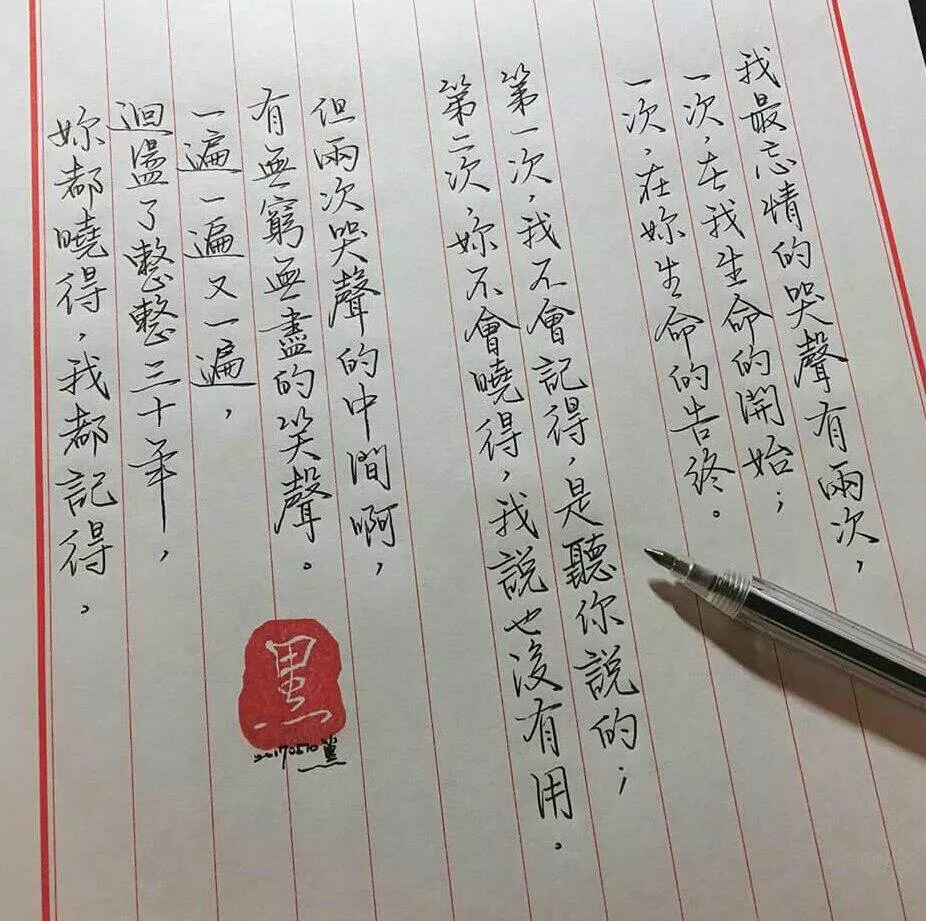 我最忘情的哭聲有兩次，
一次，在我生命的開始；
一次，在妳生命的告終。
第一次，我不會記得，是聽你說的；
第二次，妳不會曉得，我說也沒有用。
但兩次哭聲的中間啊，
有無窮無盡的笑聲。
一遍一遍又一遍，
迴盪了整整三十年，
妳都曉得，我都記得。
黑
20170510